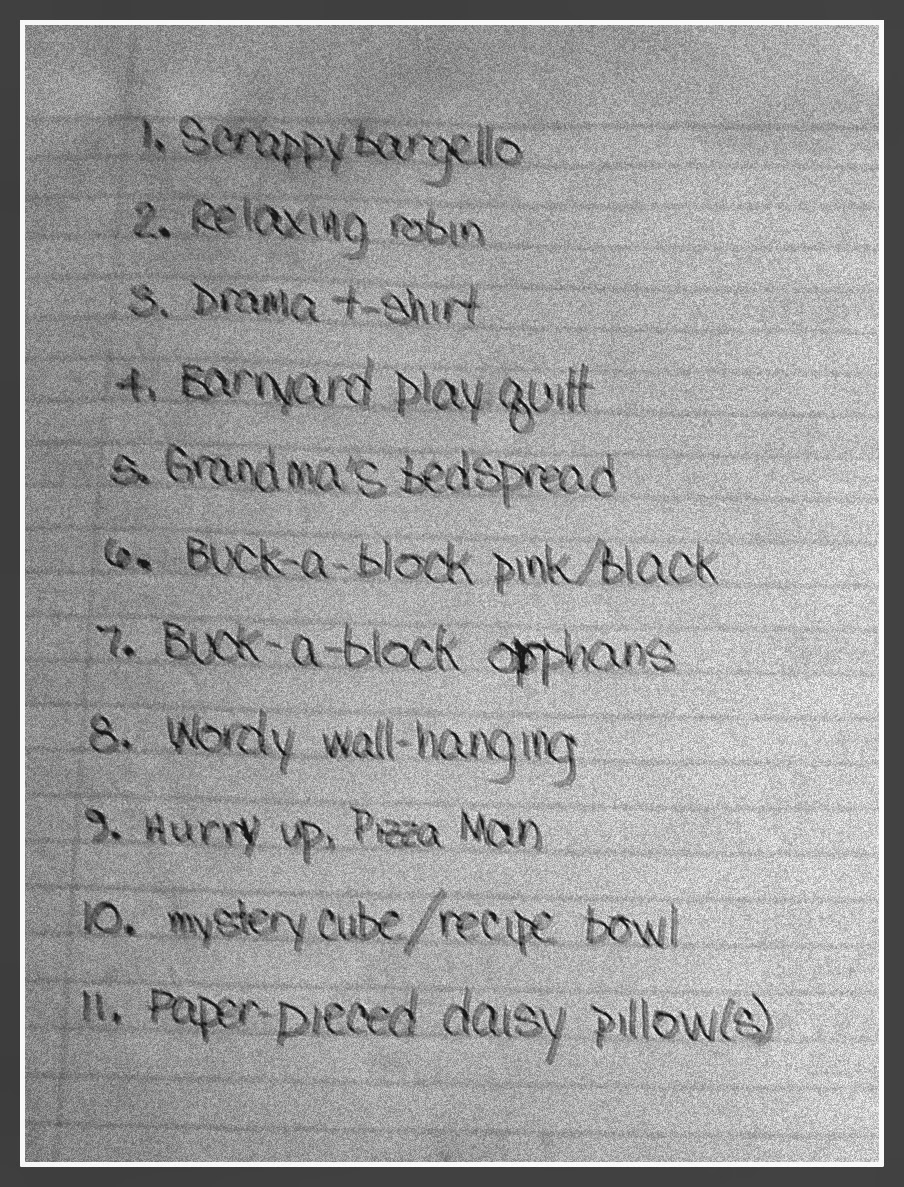 1. Scrappy bargello
2. Relaxing robin
3. Drama t-shirt
4. Barnyard play quilt
5. Grandma's bedspread
6. Buck-a-block pink/black
7. Buck-a-block orphans
8. Wordy wall-hanging
9. Hurry up, Pizza Man
10. mystery cube/recipe bowl
11. Paper-pieced daisy pillow(s)